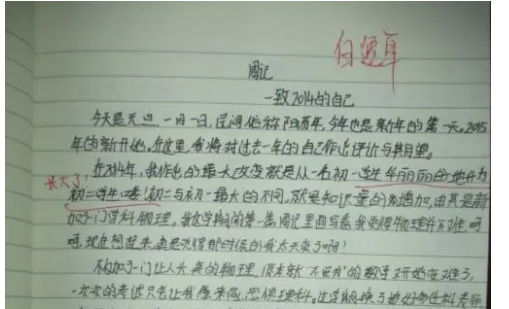 周记
—致2014的自己
今天是元旦,一月一日,民间俗称阳历年,今年也是新年的第一天。2015
年的新开始。在这里,我将对过去一年的自己作出评价与期望。
在2014年,我作出的最大改变就是从一名初一学生华丽丽的地升为
长大了!
初二学生喽!初二与初一最大的不同,就是知识量的急增加,由其是新
加了一门学科物理。我这学期的第一篇周记里面写着我觉得物理并不难,呵
呵,现在想起来,真是觉得那时候的我太天真了啊!
不仅加了一门让人头疼的物理,原来就"不更"的数学又开始变难了,
一次次的考试只会让我越来越恐惧理科。这学期换了